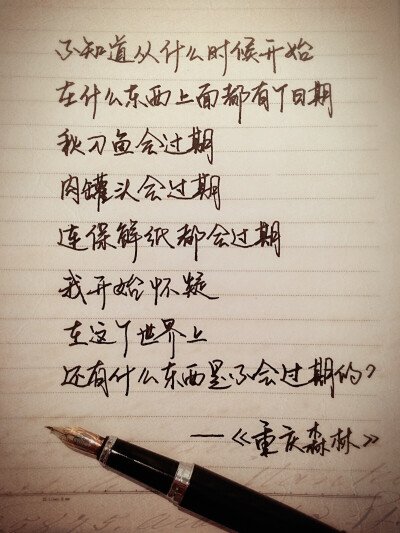 不知道从什么时候开始
在什么东西上面都有个日期
秋刀鱼会过期
肉罐头会过期
连保鲜纸都会过期
我开始怀疑
在这个世界上
还有什么东西是不会过期的?
——《重庆森林》